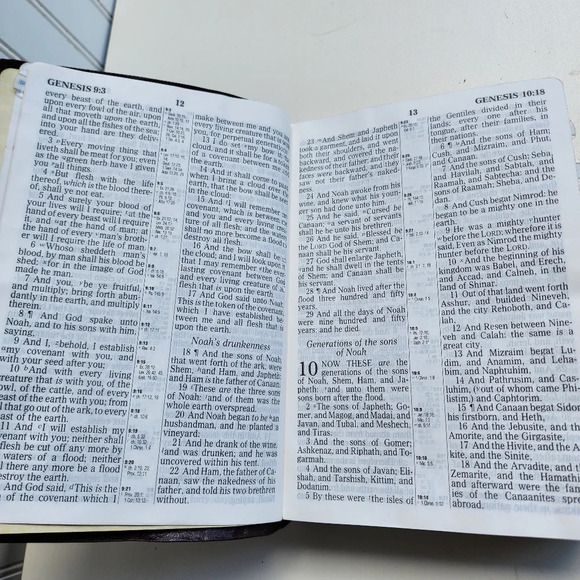 GENESIS 9:3
12
every beast of the earth, and
upon every fowl of the air, upon
all that moveth
and upon all the fishes of the sea;
into your hand are they deliv-
ered.
3 Every moving thing that
liveth shall be meat for you; even
as the green herb have I given
you all things.
4 But flesh with the life
thereof, which is the blood there-
of, shall ye not eat.
5 And surely your blood of
your lives will I require; at the
hand of every beast will I require
it, and at the hand of man; at
the hand of every man's broth-
er will I require the life of man.
6 Whoso sheddeth man's
blood, by man shall his blood be
shed: for in the image of God
made he man.
7 And you, be ye fruitful,
and multiply; bring forth abun-
dantly in the earth, and multiply
therein.
8 ¶ And God spake unto
Noah, and to his sons with him,
saying,
9 And I, behold, I establish
my covenant with you, and
with your seed after you;
10 And with every living
creature that is with you, of the
fowl, of the cattle, and of every
beast of the earth with you; from
all that go out of the ark, to every
beast of the earth.
11 And I will establish my
covenant with you; neither shall
all flesh be cut off any more by
the waters of a flood; neither
shall there any more be a flood
to destroy the earth.
12 And God said, This is the
token of the covenant which I
make between me and you and
every living creature that is with
you, for perpetual generations:
13 I do set my bow in the
cloud, and it shall be for a token
of a covenant between me and
the earth.
14 And it shall come to pass,
when I bring a cloud over the
earth, that the bow shall be seen
in the cloud:
15 And I will remember my
covenant, which is between me
and you and every living creature
of all flesh; and the waters
shall no more become a flood to
destroy all flesh.
16 And the bow shall be in
the cloud; and I will look upon it,
that I may remember the ever-
lasting covenant between God
and every living creature of all
flesh that is upon the earth.
17 And God said unto Noah,
This is the token of the covenant,
which I have established be-
tween me and all flesh that is
upon the earth.
Noah's drunkenness
18 ¶ And the sons of Noah,
that went forth of the ark, were
Shem, and Ham, and Japheth:
and Ham is the father of Canaan.
19 These are the three sons
of Noah: and of them was the
whole earth overspread.
20 And Noah began to be an
husbandman, and he planted a
vineyard:
21 And he drank of the wine,
and was drunken; and he was
uncovered within his tent.
22 And Ham, the father of Ca-
naan, saw the nakedness of his
father, and told his two brethren
without.
13
GENESIS 10:18
23 And Shem and Japheth
took a garment, and laid it upon
both their shoulders, and went
backward, and covered the na-
kedness of their father; and their
faces were backward, and they
saw not their father's naked-
ness.
24 And Noah awoke from his
wine, and knew what his young-
er son had done unto him.
25 And he said, Cursed be
Canaan; a servant of servants
shall he be unto his brethren.
26 And he said, Blessed be
the LORD God of Shem; and Ca-
naan shall be his servant.
27 God shall enlarge Japheth,
and he shall dwell in the tents
of Shem; and Canaan shall be
his servant.
28 ¶ And Noah lived after the
flood three hundred and fifty
years.
29 And all the days of Noah
were nine hundred and fifty
years: and he died.
Generations of the sons
of Noah
10 NOW THESE are the
generations of the sons
of Noah, Shem, Ham, and Ja-
pheth: and unto them were
sons born after the flood.
2 The sons of Japheth; Go-
mer, and Magog, and Madai, and
Javan, and Tubal, and Meshech,
and Tiras.
3 And the sons of Gomer;
Ashkenaz, and Riphath, and To-
garmah.
4 And the sons of Javan; Eli-
shah, and Tarshish, Kittim, and
Dodanim.
5 By these were the isles of
the Gentiles divided in their
lands; every one after his
tongue, after their families, in
their nations.
6 ¶ And the sons of Ham;
Cush, and Mizraim, and Phut,
and Canaan.
7 And the sons of Cush; Seba,
and Havilah, and Sabtah, and
Raamah, and Sabtecha: and the
sons of Raamah; Sheba, and De-
dan.
8 And Cush begat Nimrod: he
began to be a mighty one in the
earth.
9 He was a mighty hunter
before the LORD: wherefore it is
said, Even as Nimrod the mighty
hunter before the LORD.
10 And the beginning of his
kingdom was Babel, and Erech,
and Accad, and Calneh, in the
land of Shinar.
11 Out of that land went forth
Asshur, and builded Nineveh,
and the city Rehoboth, and Ca-
lah,
12 And Resen between Nine-
veh and Calah: the same is a
great city.
13 And Mizraim begat Lu-
dim, and Anamim, and Leha-
bim, and Naphtuhim,
14 And Pathrusim, and Cas-
luhim, (out of whom came Phi-
listim,) and Caphtorim.
15 ¶ And Canaan begat Sidon
his firstborn, and Heth,
16 And the Jebusite, and the
Amorite, and the Girgasite,
17 And the Hivite, and the Ark-
ite, and the Sinite,
18 And the Arvadite, and the
Zemarite, and the Hamathite:
and afterward were the fami-
lies of the Canaanites spread
abroad.